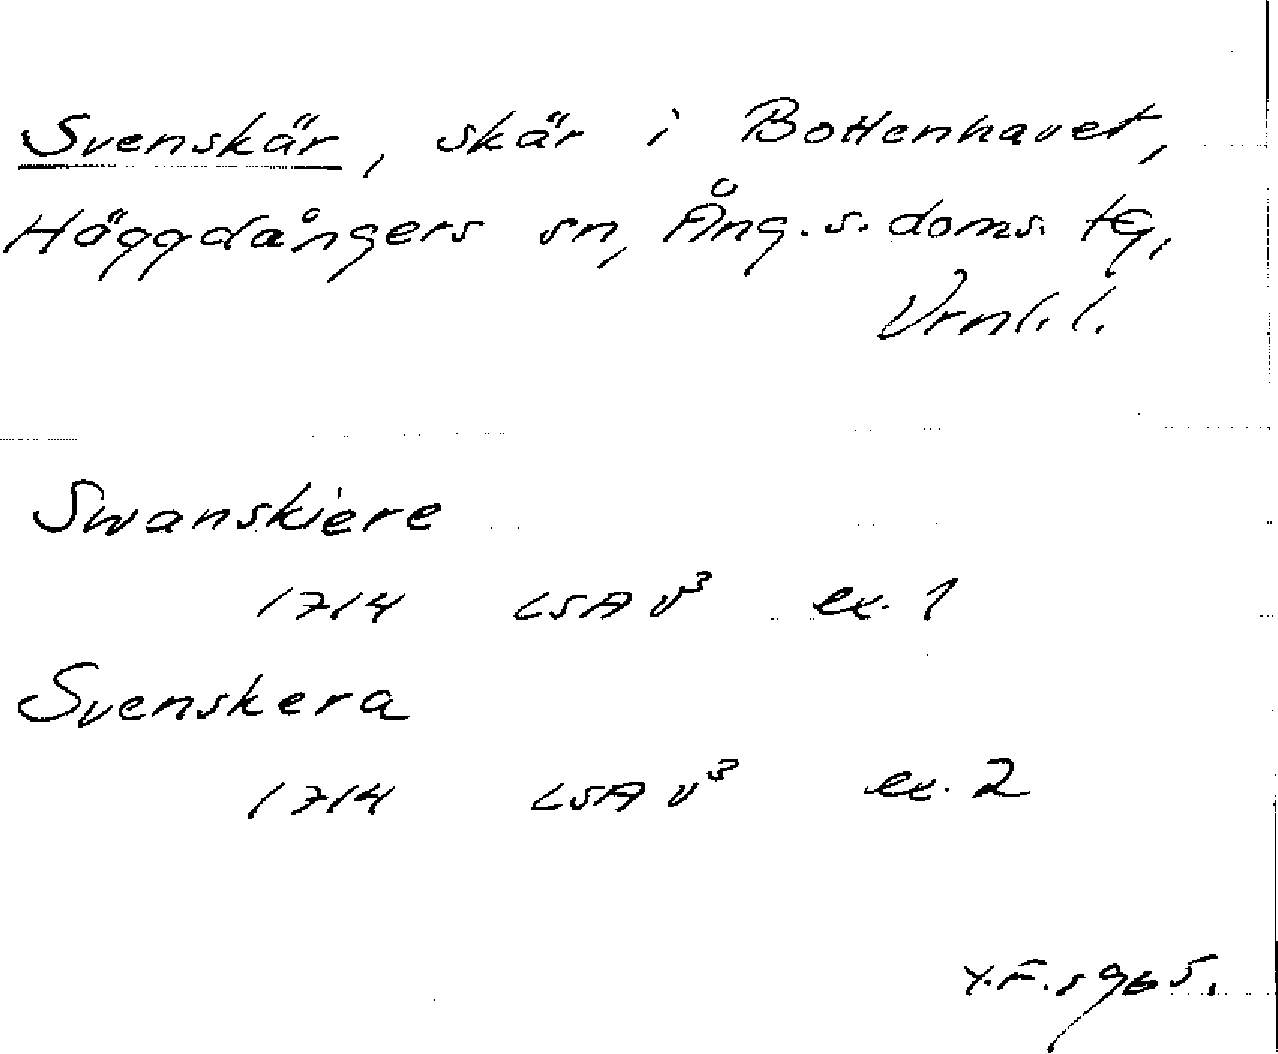 Svenskär, skär i Bottenhavet,
Häggdångers sn, Ång. s. doms. tg,
Vrnl. l.
Swanskiere
1714 LSA V³ ex. 1
Svenskera
1714 LSA V³ ex. 2
Y.F. 1965.